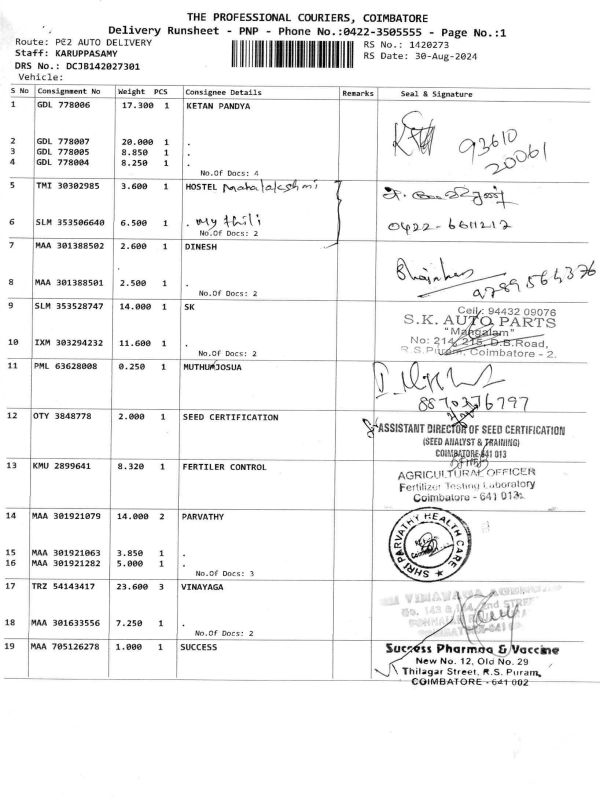 THE PROFESSIONAL COURIERS, COIMBATORE
Delivery Runsheet - PNP - Phone No.:0422-3505555 - Page No.:1
Route: PC2 AUTO DELIVERY
RS No.: 1420273
Staff: KARUPPASAMY
RS Date: 30-Aug-2024
DRS No.: DCJB142027301
Vehicle:
S No Consignment No Weight PCS Consignee Details Remarks Seal & Signature
1 GDL 778006 17.300 1 KETAN PANDYA
93610
20061
2 GDL 778007 20.000 1 .
3 GDL 778005 8.850 1 .
4 GDL 778004 8.250 1 .
No.Of Docs: 4
5 TMI 30302985 3.600 1 HOSTEL Mahalakshmi
6 SLM 353506640 6.500 1 . mythili 0422-6611217
No.Of Docs: 2
7 MAA 301388502 2.600 1 DINESH
8 MAA 301388501 2.500 1 . 9789564376
No.Of Docs: 2
9 SLM 353528747 14.000 1 SK
Cell: 94432 09076
S.K. AUTO PARTS
"Mangalam"
10 IXM 303294232 11.600 1 .
No: 214, 215, D.B.Road,
R.S.Puram, Coimbatore - 2.
No.Of Docs: 2
11 PML 63628008 0.250 1 MUTHUMJOSUA
8870376797
12 OTY 3848778 2.000 1 SEED CERTIFICATION
ASSISTANT DIRECTOR OF SEED CERTIFICATION
(SEED ANALYST & TRAINING)
COIMBATORE-641 013
13 KMU 2899641 8.320 1 FERTILER CONTROL
AGRICULTURAL OFFICER
Fertilizer Testing Laboratory
Coimbatore - 641 013.
14 MAA 301921079 14.000 2 PARVATHY
SHRI PARVATHY HEALTH CARE
15 MAA 301921063 3.850 1 .
16 MAA 301921282 5.000 1 .
No.Of Docs: 3
17 TRZ 54143417 23.600 3 VINAYAGA
18 MAA 301633556 7.250 1 .
No.Of Docs: 2
19 MAA 705126278 1.000 1 SUCCESS
Success Pharmaa & Vaccine
New No. 12, Old No. 29
Thilagar Street, R.S. Puram,
COIMBATORE - 641 002